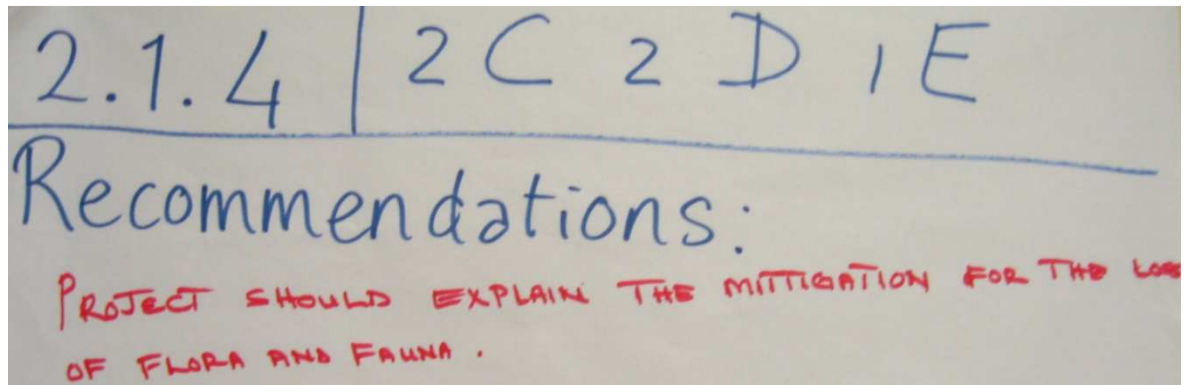 2.1.4 | 2 C 2 D 1 E
Recommendations:
PROJECT SHOULD EXPLAIN THE MITTIGATION FOR THE LOSS
OF FLORA AND FAUNA.